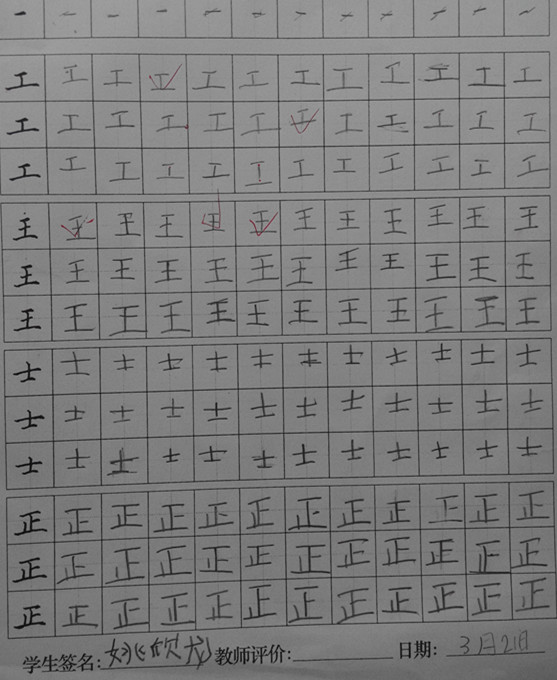 一 一 一 一 一 一 一 一 一 一 一 一
工 工 工 工 工 工 工 工 工 工 工 工
工 工 工 工 工 工 工 工 工 工 工 工
工 工 工 工 工 工 工 工 工 工 工 工
王 王 王 王 王 王 王 王 王 王 王 王
王 王 王 王 王 王 王 王 王 王 王 王
王 王 王 王 王 王 王 王 王 王 王 王
士 士 士 士 士 士 士 士 士 士 士 士
士 士 士 士 士 士 士 士 士 士 士 士
士 士 士 士 士 士 士 士 士 士 士 士
正 正 正 正 正 正 正 正 正 正 正 正
正 正 正 正 正 正 正 正 正 正 正 正
正 正 正 正 正 正 正 正 正 正 正 正
学生签名:姚欣龙 教师评价: 日期: 3月21日